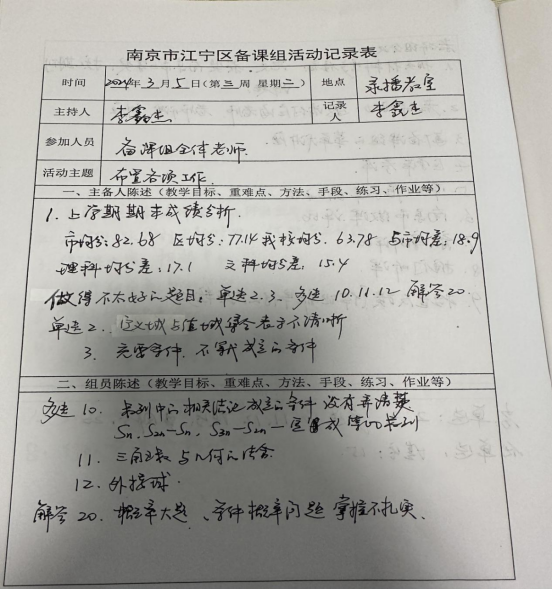 南京市江宁区备课组活动记录表
时间 2024年3月5日(第三周 星期二) 地点 录播教室
主持人 李鑫杰 记录人 李鑫杰
参加人员 备课组全体老师.
活动主题 布置各项工作.
一、主备人陈述(教学目标、重难点、方法、手段、练习、作业等)
1. 上学期期末成绩分析.
市均分:82.68 区均分:77.14 我校均分.63.78 与市均差:18.9
理科均分差:17.1 文科均分差.15.4
做得不太好的题目:单选2.3、多选10.11.12 解答20.
单选2. 定义域与值域 不清晰
3. 充要条件. 成立的条件
二、组员陈述(教学目标、重难点、方法、手段、练习、作业等)
多选10. 中的相关结论成立的条件没有弄清楚
Sn, S2n-Sn, S3n-S2n 一定 成等比
11. 三角函数与几何的结合
12. 外接球.
解答20. 概率大题、条件概率问题 掌握不扎实、